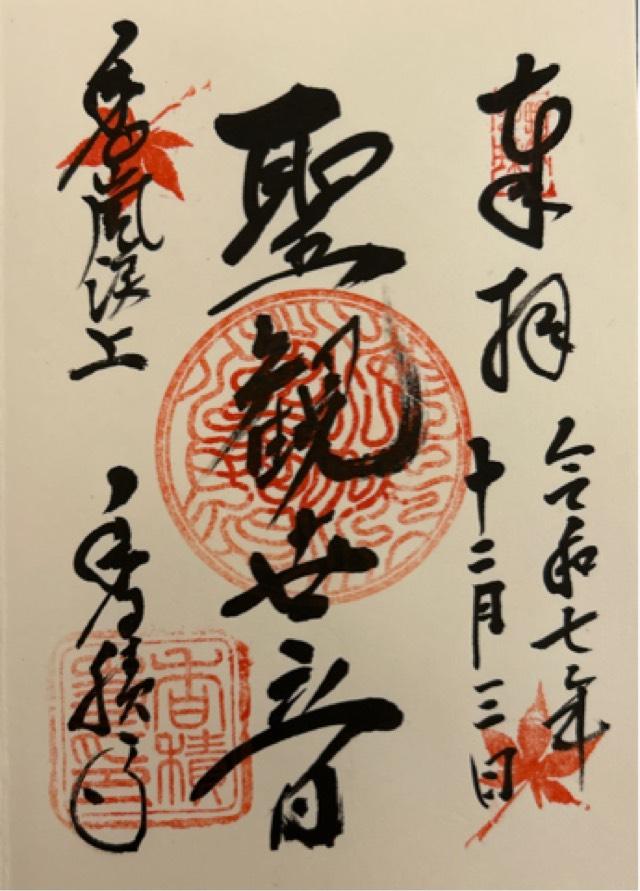 奉拝
令和七年
十二月三日
聖観世音
香嵐渓上
香積寺
香積